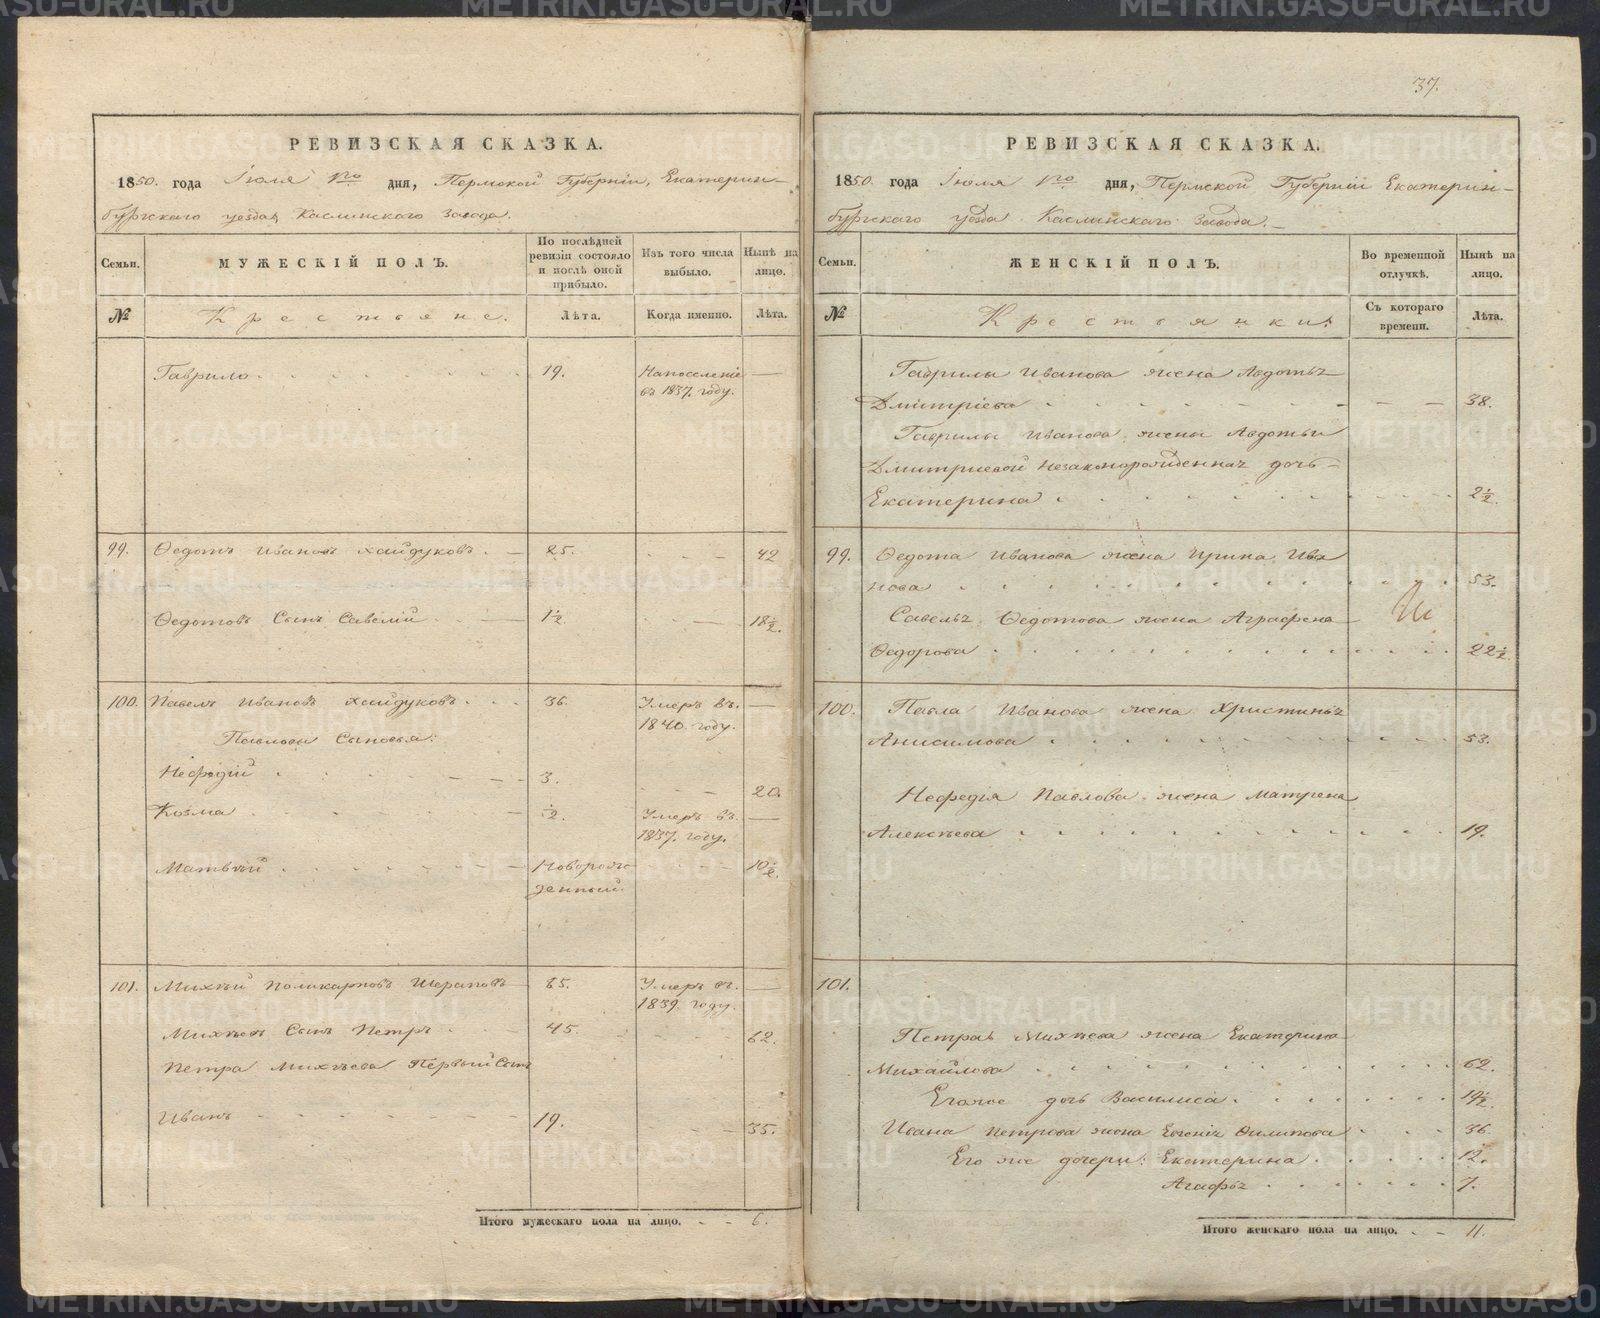 РЕВИЗСКАЯ СКАЗКА.
1850. года Іюля 1го дня, Пермской Губерніи, Екатерин-
бургскаго уезда, Каслинскаго Завода.
Семьи.
МУЖЕСКІЙ ПОЛЪ.
По послѣдней ревизіи состояло и послѣ оной прибыло.
Изъ того числа выбыло.
Нынѣ на лицо.
№
Крестьяне.
Лѣта.
Когда именно.
Лѣта.
Гаврило 19. На поселеніе —
въ 1837. году.
99. Ѳедотъ Ивановъ Хайдуковъ. 25. 42
Ѳедотовъ Сынъ Савелій 1½ 18½.
100. Павелъ Ивановъ Хайдуковъ. 36. Умеръ въ. —
1840. году.
Павловы Сыновья:
Нефедій 3. 20.
Козма ½. Умеръ въ. —
1837. году.
Матвѣй Новорож- 10½.
денный.
101. Михѣй Поликарповъ Шераповъ 65. Умеръ въ. —
1839. году.
Михѣевъ Сынъ Петръ 45 62.
Петра Михѣева Первый Сынъ
Иванъ 19. 35.
Итого мужескаго пола на лицо. 6.
37.
РЕВИЗСКАЯ СКАЗКА.
1850. года Іюля 1го дня, Пермской Губерніи Екатерин-
бургскаго уезда Каслинскаго Завода.
Семьи.
ЖЕНСКІЙ ПОЛЪ.
Во временной отлучкѣ.
Нынѣ на лицо.
№
Крестьянки:
Съ котораго времени.
Лѣта.
Гаврилы Иванова жена Авдотья
Дмитріева 38.
Гаврилы Иванова жены Авдотьи
Дмитриевой незаконорожденная дочь
Екатерина 2½.
99. Ѳедота Иванова жена Ирина Ива
нова 53.
Савелья Ѳедотова жена Аграфена
Ѳедорова 22½.
100. Павла Иванова жена Христинья
Анисимова 53.
Нефедія Павлова жена Матрена
Алексѣева 19.
101.
Петра Михѣева жена Екатерина
Михайлова 62.
Егоже дочь Василиса. 14½.
Ивана Петрова жена Евгенія Филипова 36
Его же дочери: Екатерина 12.
Агафья 7.
Итого женскаго пола на лицо. 11.
METRIKI.GASO-URAL.RU